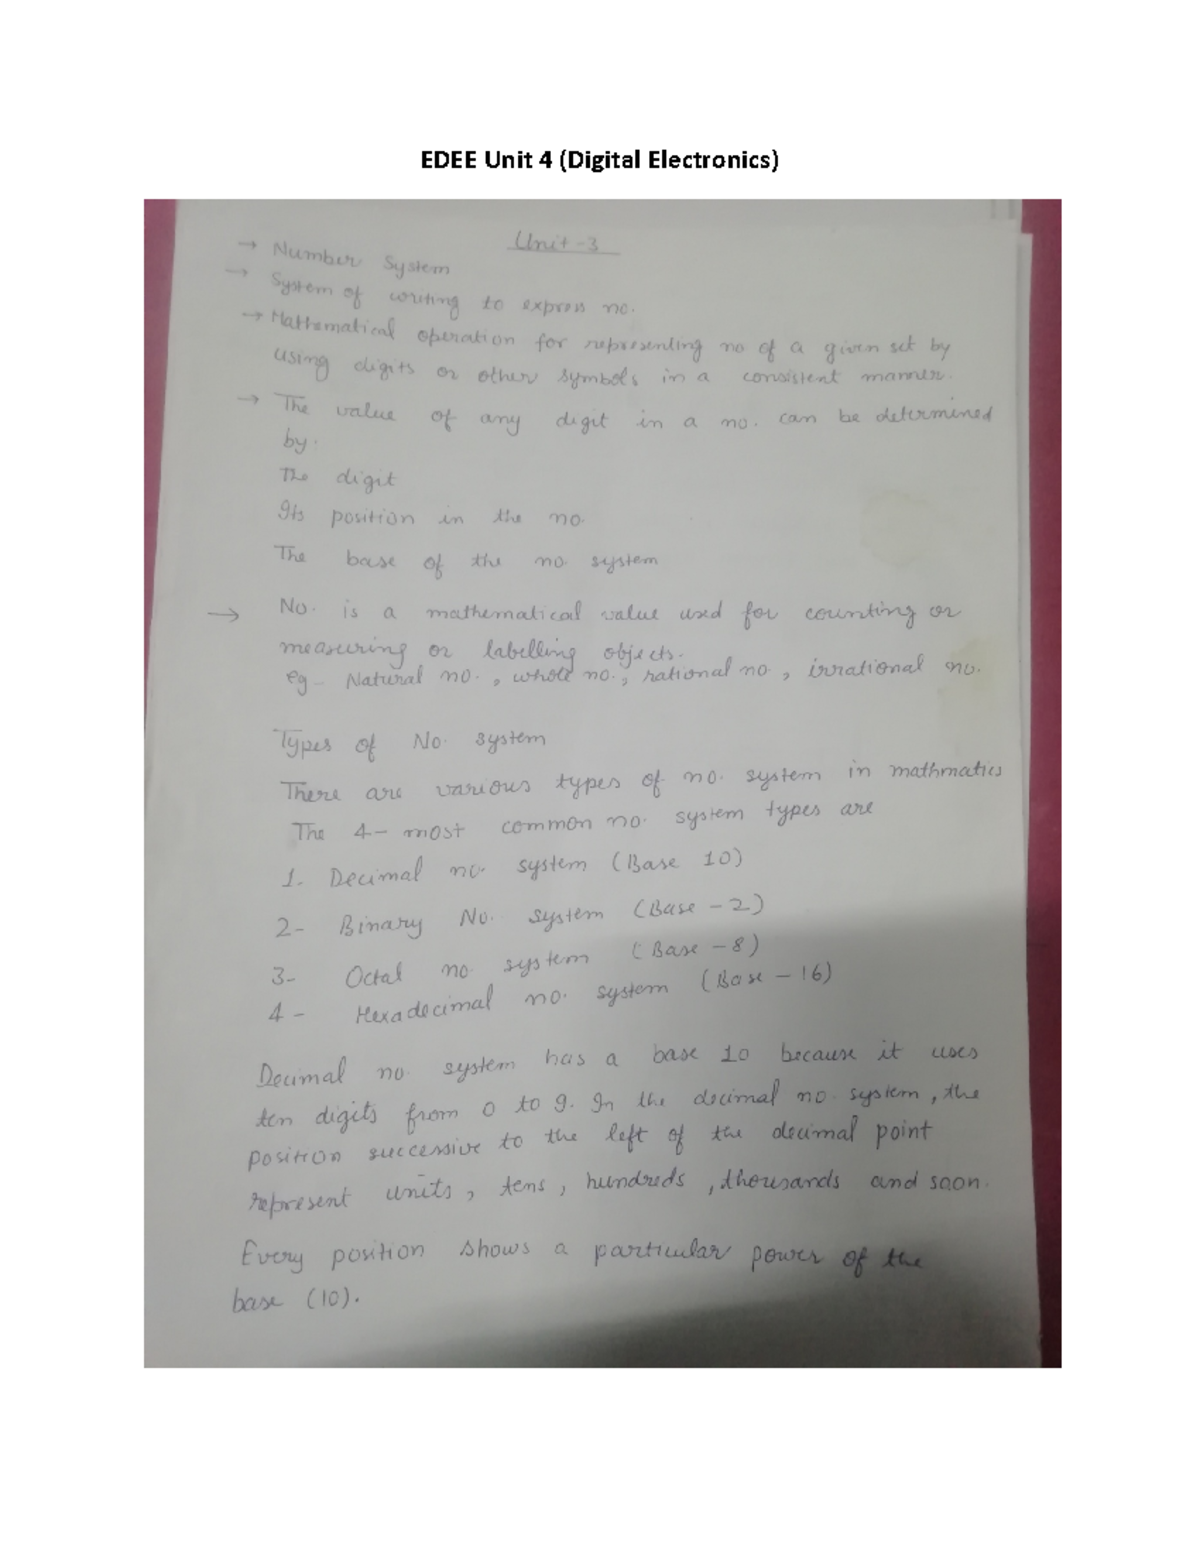 EDEE Unit 4 (Digital Electronics)
Unit-3
→ Number System
→ System of writing to express no.
→ Mathematical operation for representing no of a given set by
using digits or other symbols in a consistent manner.
→ The value of any digit in a no. can be determined
by.
The digit
Its position in the no.
The base of the no. system
→ No. is a mathematical value used for counting or
measuring or labelling objects.
eg - Natural no. , whole no., rational no , irrational no.
Types of No. system
There are various types of no. system in mathmatics
The 4- most common no. system types are
1. Decimal no. system (Base 10)
2- Binary No. system (Base - 2)
3- Octal no. system (Base - 8)
4 - Hexadecimal no. system (Base - 16)
Decimal no. system has a base 10 because it uses
ten digits from 0 to 9. In the decimal no. system , the
position successive to the left of the decimal point
represent units , tens , hundreds , thousands and soon.
Every position shows a particular power of the
base (10).